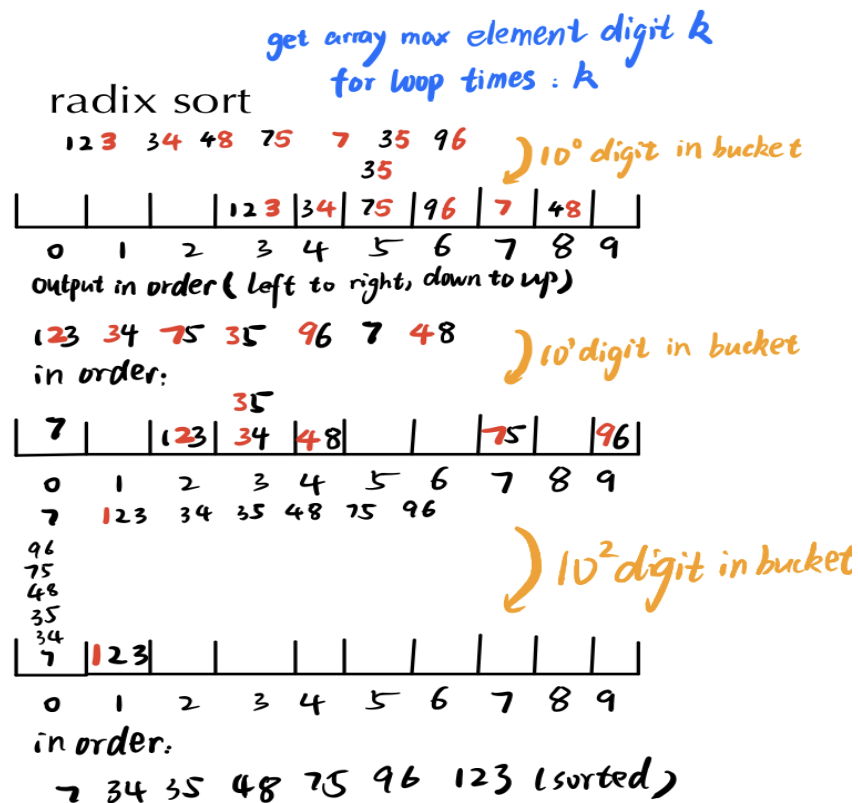 get array max element digit k
for loop times : k
radix sort
123 34 48 75 7 35 96
10⁰ digit in bucket
35
123 34 75 96 7 48
0 1 2 3 4 5 6 7 8 9
output in order ( left to right, down to up )
123 34 75 35 96 7 48
10¹ digit in bucket
in order:
35
7 123 34 48 75 96
0 1 2 3 4 5 6 7 8 9
7 123 34 35 48 75 96
96
75
10² digit in bucket
48
35
34
7 123
0 1 2 3 4 5 6 7 8 9
in order:
7 34 35 48 75 96 123 (sorted)